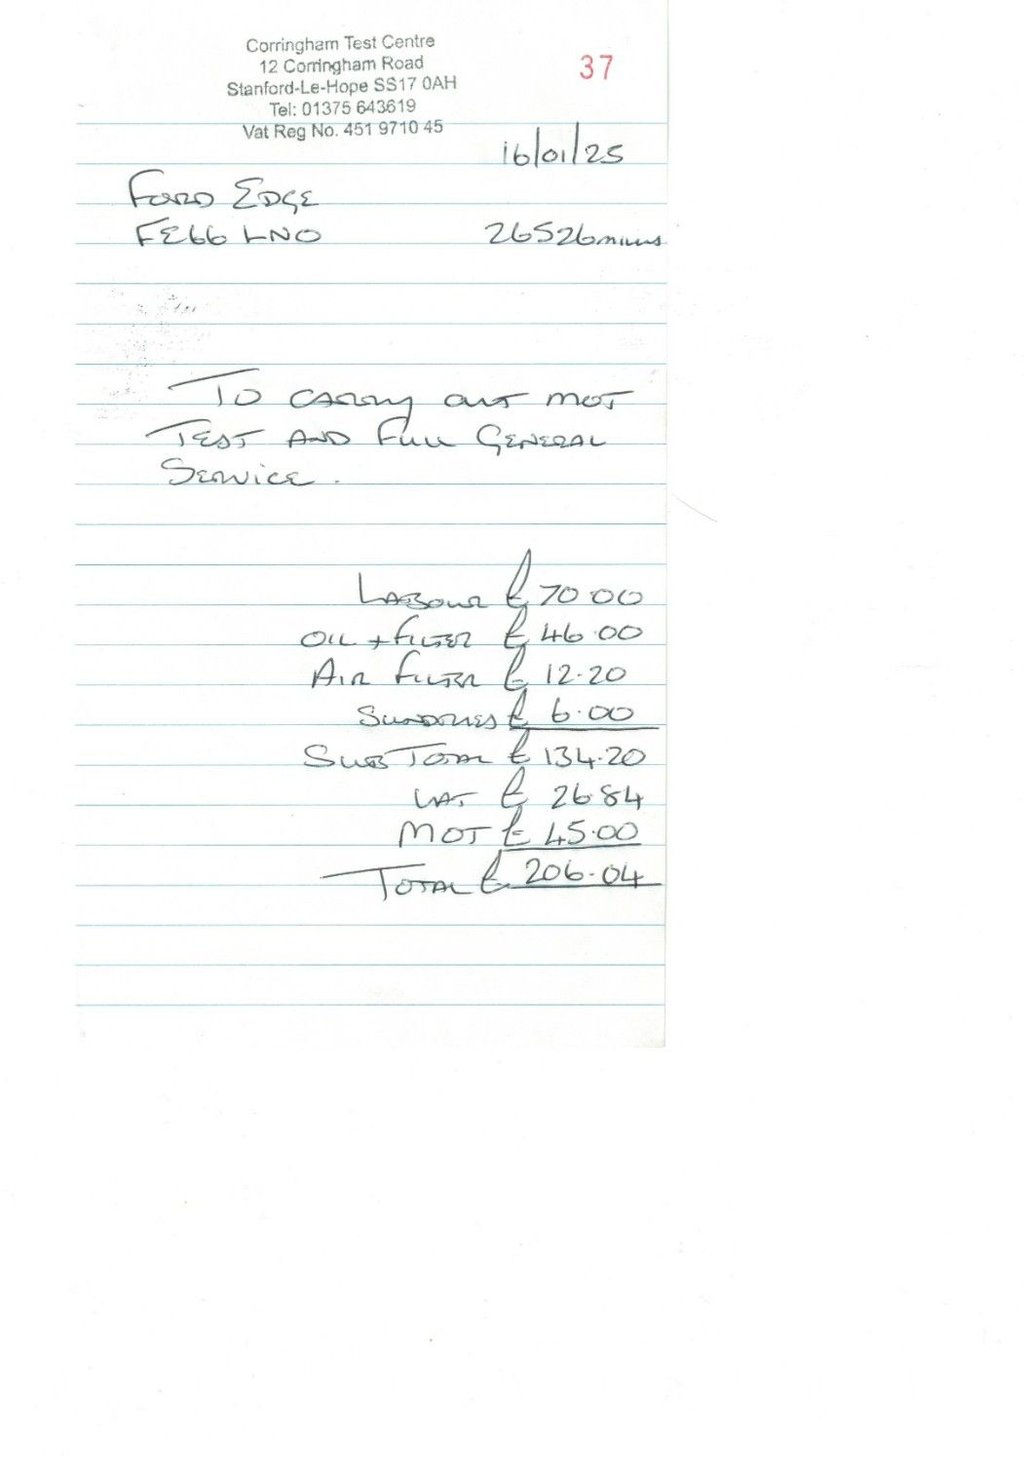 Corringham Test Centre
12 Corringham Road
Stanford-Le-Hope SS17 0AH
Tel: 01375 643619
Vat Reg No. 451 9710 45
37
16/01/25
FORD EDGE
FE66 LNO 26526 miles
To CARRY out MOT
TEST AND Full GENERAL
SERVICE.
LABOUR £ 70.00
OIL + FILTER £ 46.00
AIR FILTER £ 12.20
SUNDRIES £ 6.00
SUB TOTAL £ 134.20
VAT £ 26.84
MOT £ 45.00
TOTAL £ 206.04